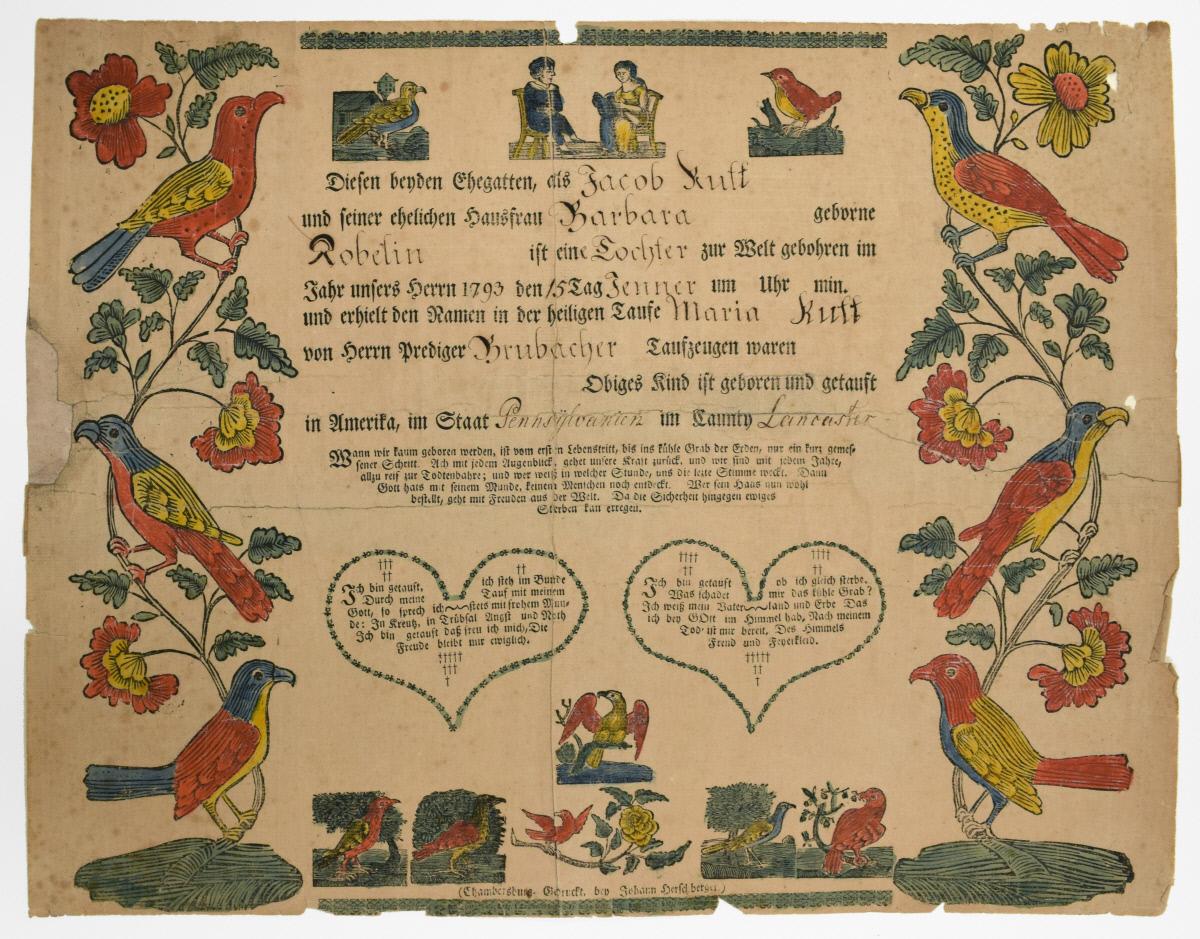 Diesen beyden Ehegatten, als Jacob Kutt
und seiner ehelichen Hausfrau Barbara geborne
Kobelin ist eine Tochter zur Welt gebohren im
Jahr unsers Herrn 1793 den 15 Tag Jenner um Uhr min.
und erhielt den Namen in der heiligen Taufe Maria Kutt
von Herrn Prediger Brubacher Taufzeugen waren
Obiges Kind ist geboren und getauft
in Amerika, im Staat Pennsylvanien im Caunty Lancaster
Wann wir kaum geboren werden, ist vom ersten Lebenstritt, bis ins kühle Grab der Erden, nur ein kurz gemes-
sener Schritt. Ach mit jedem Augenblick, gehet unsere Kraft zurück, und wir sind mit jedem Jahre,
allzu reif zur Todtenbahre; und wer weiß in welcher Stunde, uns die lezte Stimme weckt. Dann
Gott hats mit seinem Munde, keinem Menschen noch entdeckt. Wer sein Haus nun wohl
bestellt, geht mit Freuden aus der Welt. Da die Sicherheit hingegen ewiges
Sterben kan erregen.
Ich bin getauft, ich steh im Bunde
Durch meine Tauf mit meinem
Gott, so sprech ich stets mit frohem Mun-
de: In Kreutz, in Trübsal Angst und Noth
Ich bin getauft daß freu ich mich, Die
Freude bleibt mir ewiglich.
Ich bin getauft ob ich gleich sterbe.
Was schadet mir das kühle Grab?
Ich weiß mein Vaterland und Erbe Das
ich bey GOtt im Himmel hab, Nach meinem
Tod ist mir bereit, Des Himmels
Freud und Feyerkleid.
(Chambersburg, Gedruckt, bey Johann Herschberger.)